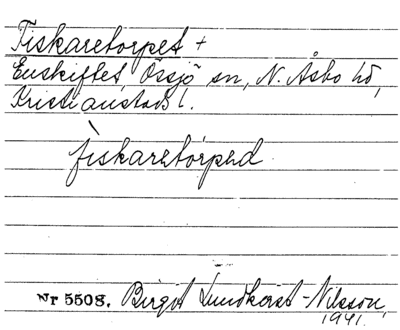 Fiskaretorpet +
Enskiftet Össjö sn, N. Åsbo hd,
Kristianstads l.
fìskaretòrped
Nr 5508. Birgit Lundkvist-Nilsson,
1941.